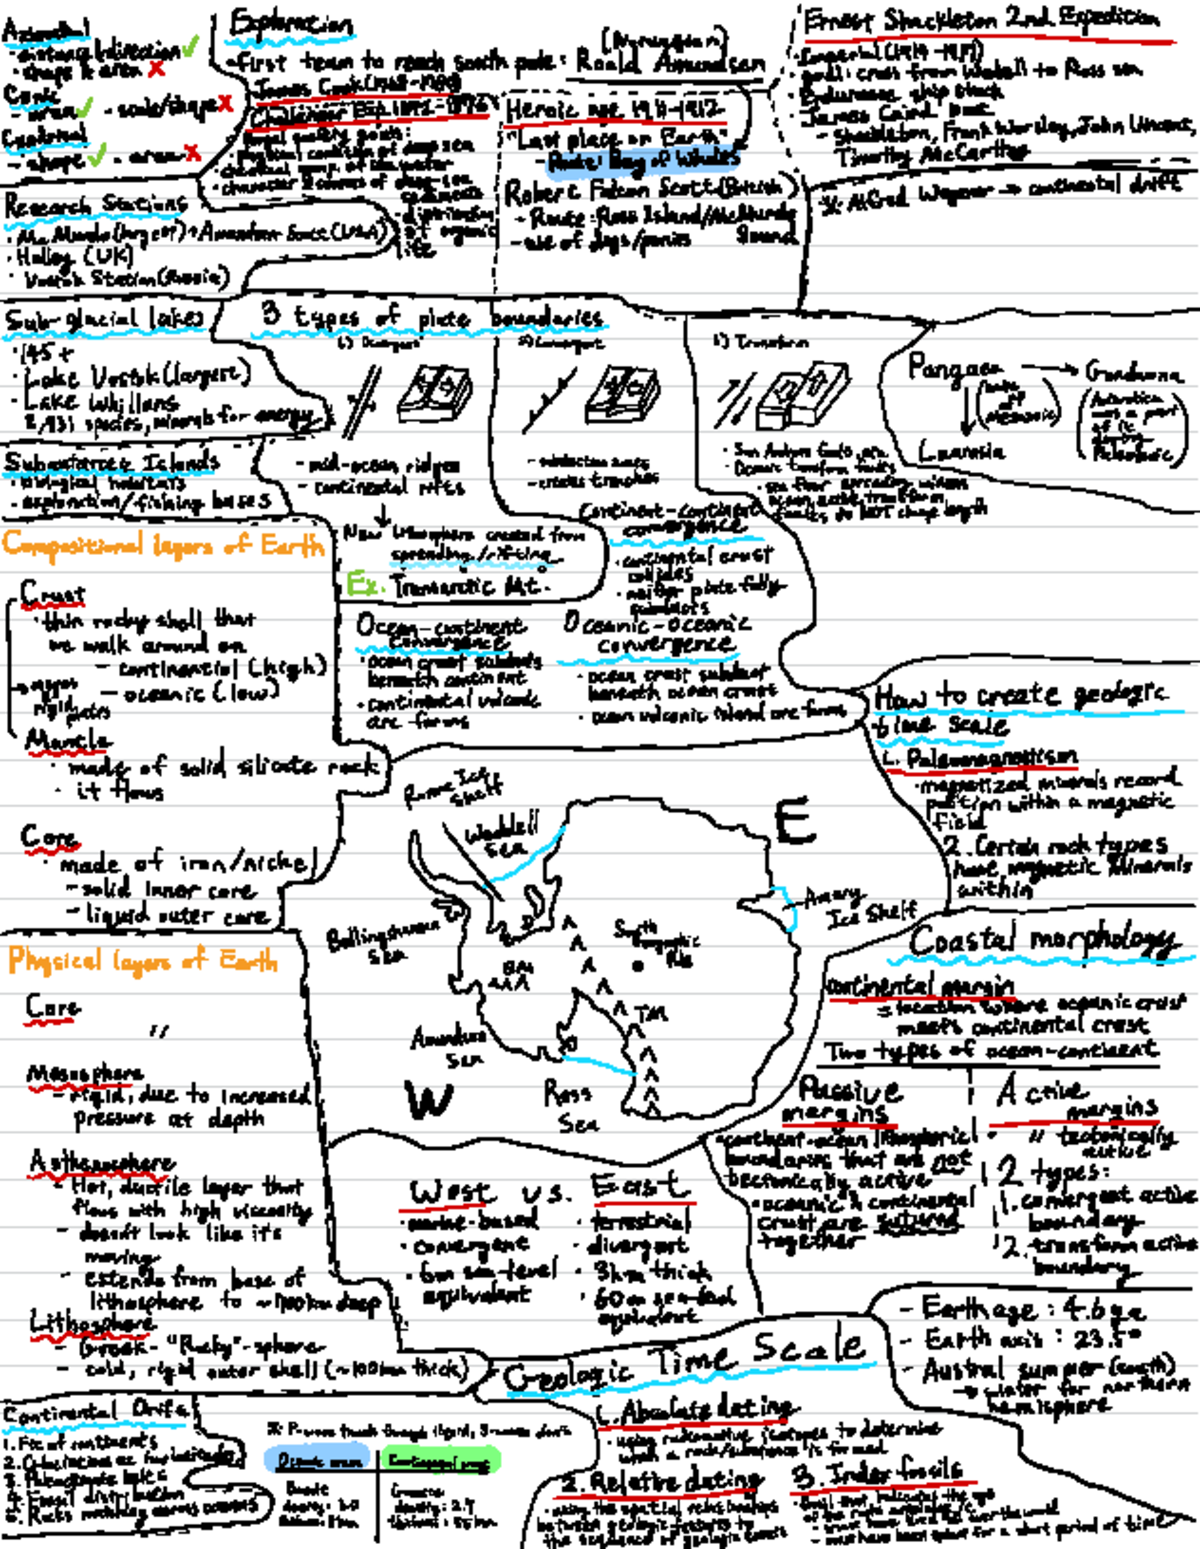 Azimuthal
· distance & direction ✓
· shape & area ✗
Conic
- area ✓ - scale/shape ✗
- shape ✓ - area ✗
Research Stations
· McMurdo (largest) + Amundsen Scott (USA)
· Halley (UK)
· Vostok Station (Russia)
Exploration
- First team to reach south pole: Roald Amundsen
(Norwegian)
James Cook
Challenger Exp. 1872-1876
· physical condition of deep sea
· chemical comp. of sea water
· distribution of organic life
Heroic age 1911-1912
"Last place on Earth"
- Route: Bay of Whales
Robert Falcon Scott (British)
- Route: Ross Island/McMurdo Sound
- use of dogs/ponies
Ernest Shackleton 2nd Expedition
· Imperial (1914-1917)
· goal: cross from Weddell to Ross sea
· Endurance ship stuck
· James Caird boat
- Shackleton, Frank Worsley, John Vincent,
Timothy McCarthy
※ Alfred Wegener → continental drift
Sub-glacial lakes
· 145 +
- Lake Vostok (largest)
- Lake Whillans
3,931 species, minerals for energy
Subantarctic Islands
· biological habitats
· exploration/fishing bases
3 types of plate boundaries
1) Divergent
2) Convergent
3) Transform
- mid-ocean ridges
- continental rifts
↓
New lithosphere created from
spreading/rifting
Ex. Transantarctic Mt.
- subduction zones
- creates trenches
· San Andreas fault
· Oceanic transform faults
Pangaea → Gondwana
↓
Laurasia
Continent-continent
convergence
· continental crust
collides
· neither plate fully
subducts
Ocean-continent
convergence
· ocean crust subducts
beneath continent
· continental volcanic
arc forms
Oceanic-oceanic
convergence
· ocean crust subduct
beneath ocean crust
· ocean volcanic island arc forms
Compositional layers of Earth
Crust
· thin rocky shell that
we walk around on
- continential (high)
- oceanic (low)
rigid plates
Mantle
· made of solid silicate rock
· it flows
Core
· made of iron/nickel
- solid inner core
- liquid outer core
Physical layers of Earth
Core
"
Mesosphere
- rigid, due to increased
pressure at depth
Asthenosphere
- Hot, ductile layer that
flows with high viscosity
- doesn't look like it's
moving
- extends from base of
lithosphere to
Lithosphere
- Greek - "Rocky"-sphere
- cold, rigid outer shell (~100km thick)
Ronne Ice
Shelf
Weddell
Sea
E
Amery
Ice Shelf
Bellingshausen
Sea
South
Magnetic
Pole
TM
Amundsen
Sea
W
Ross
Sea
West vs. East
· marine-based
· convergent
· 6m sea-level
equivalent
· terrestrial
· divergent
· 3km thick
· 60m sea-level
equivalent
How to create geologic
time scale
1. Paleomagnetism
· magnetized minerals record
position within a magnetic
field
2. Certain rock types
have magnetic minerals
within
Coastal morphology
Continental margin
= location where oceanic crust
meets continental crust
Two types of ocean-continent
Passive
margins
· continent-ocean lithospheric
boundaries that are not
tectonically active
· oceanic & continental
crust are sutured
together
Active
margins
· " tectonically
active
2 types:
1. convergent active
boundary
2. transform active
boundary
- Earth age: 4.6 ga
- Earth axis: 23.5°
- Austral summer (south)
→ winter for northern
hemisphere
Geologic Time Scale
1. Absolute dating
· using radioactive isotopes to determine
when a rock/substance is formed
2. Relative dating
· using the spatial relationships
between geologic features to
the sequence of geologic events
3. Index fossils
- must have been around for a short period of time
Continental Drift
1. Fit of continents
4. Fossil distribution
5. Rocks matching across oceans